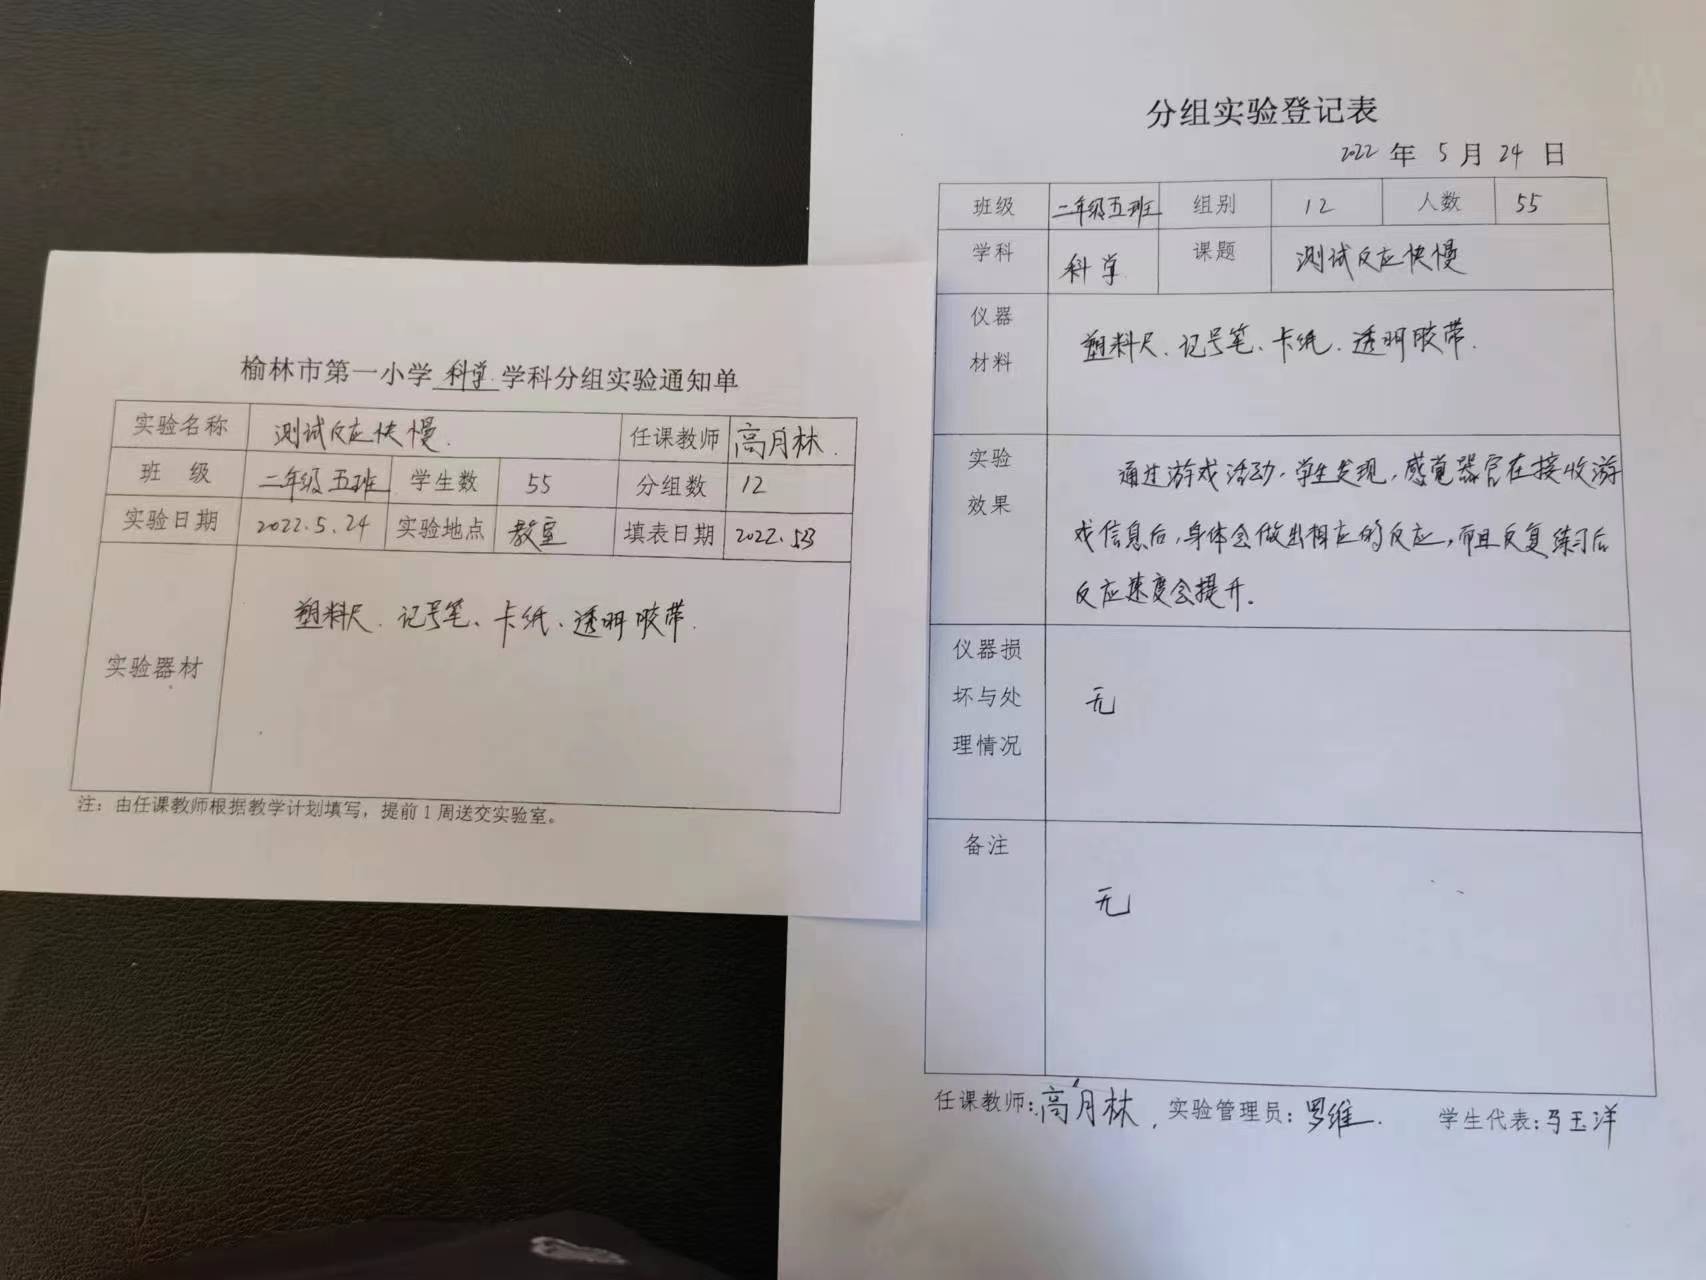 榆林市第一小学 科学 学科分组实验通知单
实验名称 测试反应快慢. 任课教师 高月林.
班 级 二年级五班 学生数 55 分组数 12
实验日期 2022.5.24 实验地点 教室 填表日期 2022.5.23
实验器材 塑料尺、记号笔、卡纸、透明胶带.
注：由任课教师根据教学计划填写，提前1周送交实验室。
分组实验登记表
2022 年 5 月 24 日
班级 二年级五班 组别 12 人数 55
学科 科学 课题 测试反应快慢
仪器
材料
塑料尺、记号笔、卡纸、透明胶带.
实验
效果
通过游戏活动，学生发现，感觉器官在接收游
戏信息后，身体会做出相应的反应，而且反复练习后
反应速度会提升.
仪器损
坏与处
理情况
无
备注
无
任课教师：高月林. 实验管理员：罗维. 学生代表：马玉洋